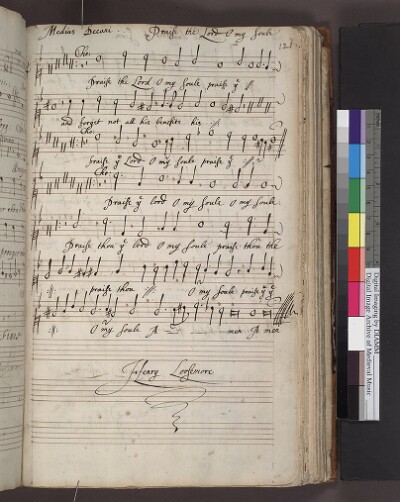 Medius Decani. Praise the Lord O my soule
121.
Cho:
Praise the Lord O my soule praise yͤ :||:
and forget not all his benefits his :||:
Cho:
praise yͤ Lord O my soule praise yͤ :||:
Cho:
Praise yͤ lord O my soule O my soule
Praise thou yͤ lord O my soule praise thou the
:||: praise thou :||: O my soule praise yͤ yͤ
:||: O my soule A men A men
Henry Loosemore
Finis
Digital Imaging by DIAMM
Digital Image Archive of Medieval Music